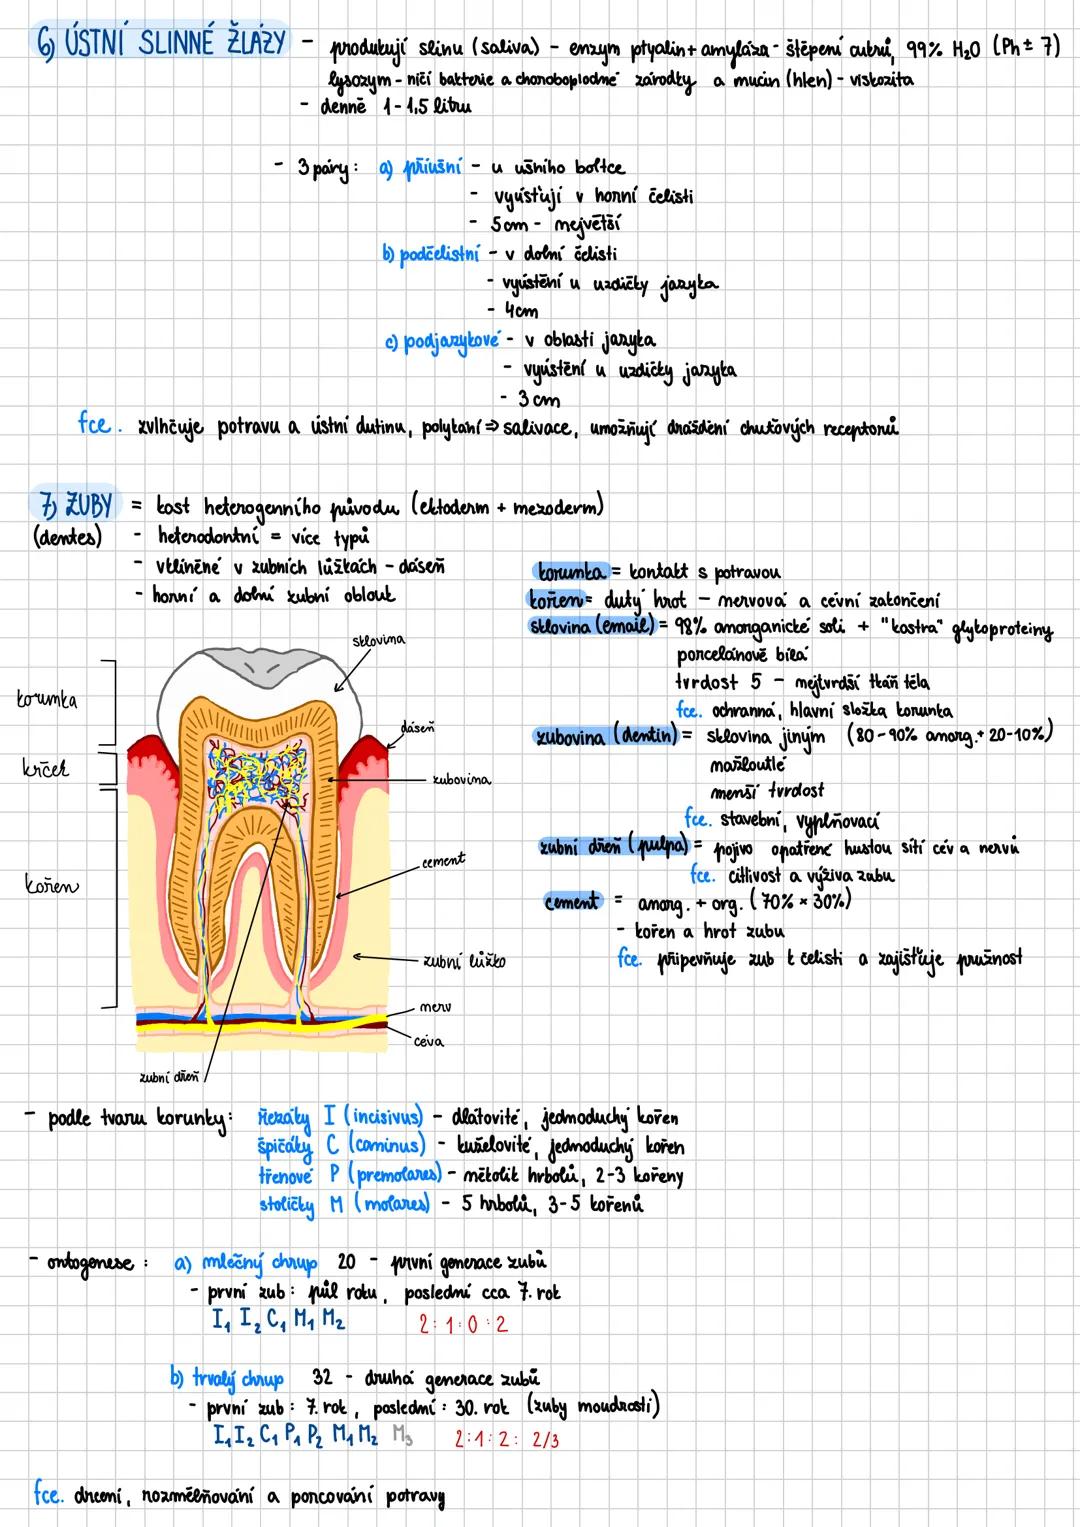 6) ÚSTNÍ SLINNÉ ŽLÁZY - produkují slinu (saliva) - enzym ptyalin + amyláza - štěpení cukrů, 99% H₂O (Ph ± 7)
lysozym - ničí bakterie a choroboplodné zárodky a mucin (hlen) - viskozita
- denně 1-1,5 litru
- 3 páry: a) příušní - u ušního boltce
- vyúsťují v horní čelisti
- 5cm - největší
b) podčelistní - v dolní čelisti
- vyústění u uzdičky jazyka
- 4cm
c) podjazykové - v oblasti jazyka
- vyústění u uzdičky jazyka
- 3cm
fce. zvlhčuje potravu a ústní dutinu, polykaní ⇒ salivace, umožňují dráždění chuťových receptorů
7) ZUBY = kost heterogenního původu (ektoderm + mezoderm)
(dentes) - heterodontní = více typů
- vklíněné v zubních lůžkách - dáseň
- horní a dolní zubní oblouk
korunka = kontakt s potravou
kořen = dutý hrot - nervová a cévní zakončení
sklovina (email) = 98% anorganické soli + "kostra" glykoproteiny
porcelánově bílá
tvrdost 5 - nejtvrdší tkáň těla
fce. ochranná, hlavní složka korunka
zubovina (dentin) = sklovina jiným (80-90% anorg. + 20-10%)
nažloutlé
menší tvrdost
fce. stavební, vyplňovací
zubní dřeň (pulpa) = pojivo opatřené hustou sítí cév a nervů
fce. citlivost a výživa zubu
cement = anorg. + org. (70% × 30%)
- kořen a hrot zubu
fce. připevňuje zub k čelisti a zajišťuje pružnost
sklovina
korunka
dáseň
krček
zubovina
cement
kořen
zubní lůžko
nerv
céva
zubní dřeň
- podle tvaru korunky: řezáky I (incisivus) - dlátovité, jednoduchý kořen
špičáky C (caminus) - kuželovité, jednoduchý kořen
třenové P (premolares) - několik hrbolů, 2-3 kořeny
stoličky M (molares) - 5 hrbolů, 3-5 kořenů
- ontogenese: a) mlečný chrup 20 - první generace zubů
- první zub: půl roku, poslední cca 7. rok
I₁ I₂ C₁ M₁ M₂ 2:1:0:2
b) trvalý chrup 32 - druhá generace zubů
- první zub: 7. rok, poslední: 30. rok (zuby moudrosti)
I₁ I₂ C₁ P₁ P₂ M₁ M₂ M₃ 2:1:2: 2/3
fce. drcení, rozmělňování a porcování potravy